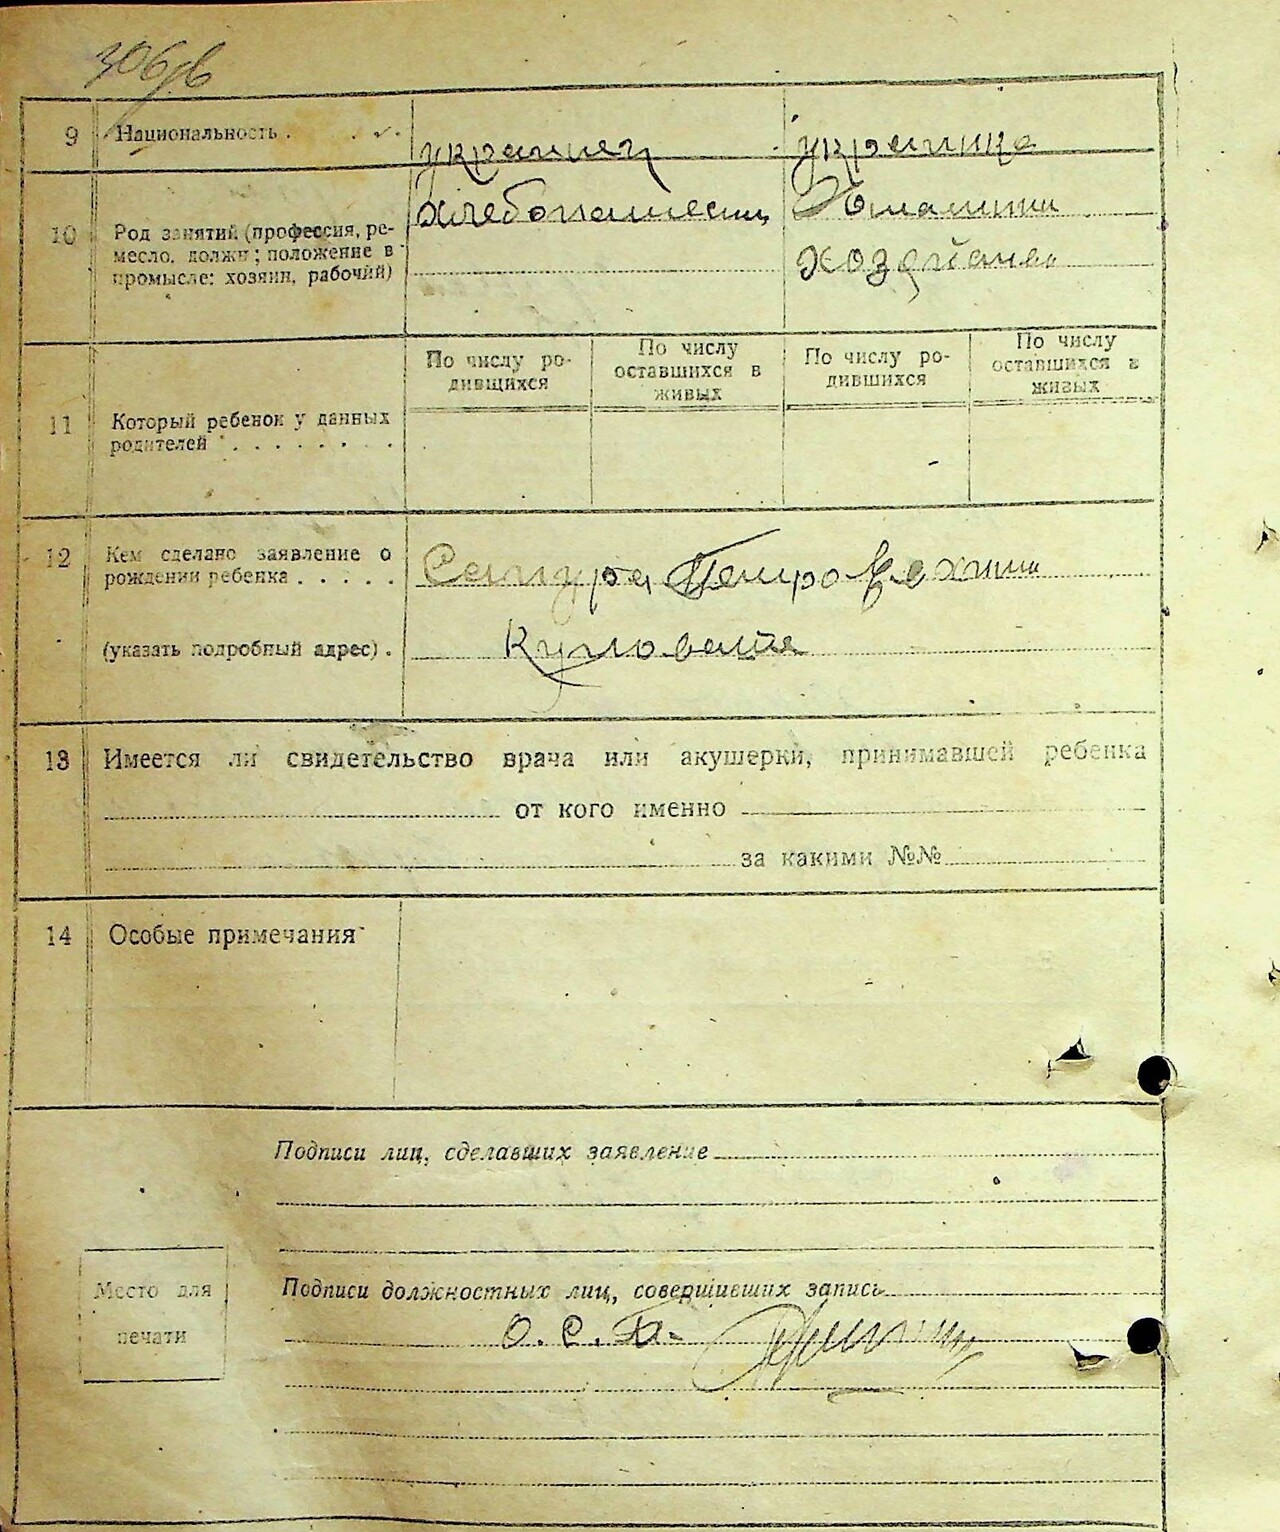 306
9 Национальность . . ✓.
украинец украинка
10 Род занятий (профессия, ре-
месло, должн; положение в
промысле: хозяин, рабочий)
Хлебопашесний Домашняя
хозяйка
11 Который ребенок у данных
родителей . . . . . . . .
По числу ро-
дивщихся
По числу
оставшихся в
живых
По числу ро-
дившихся
По числу
оставшихся в
живых
12 Кем сделано заявление о
рождении ребенка . . . . .
Петро
(указать подробный адрес) .
13 Имеется ли свидетельство врача или акушерки, принимавшей ребенка
от кого именно
за какими №№
14 Особые примечания
Подписи лиц, сделавших заявление
Место для
печати
Подписи должностных лиц, совершивших запись